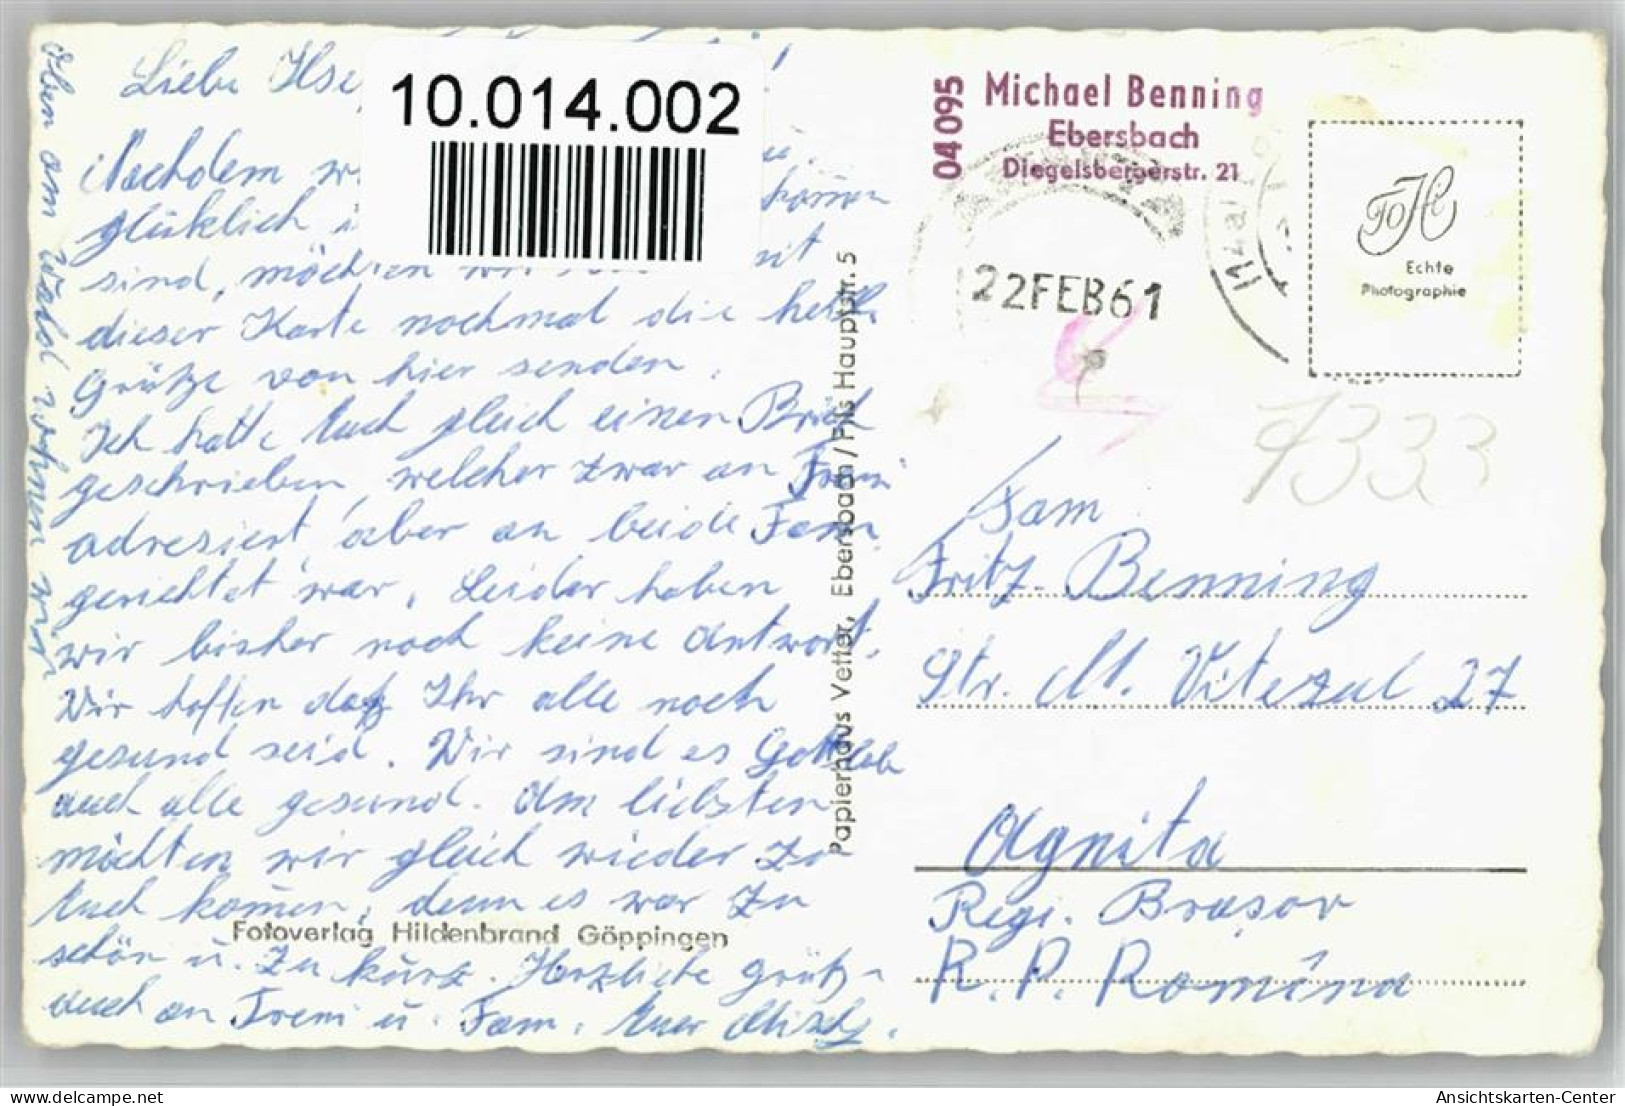 Liebe Ilse
10.014.002
Nachdem
glücklich
sind, möchten wir mit
dieser Karte nochmal die herzl.
Grüße von hier senden.
Ich hatte Euch gleich einen Brief
geschrieben, welcher zwar an
adresiert, aber an beide Fam.
gerichtet war. Leider haben
wir bisher noch keine Antwort.
Wir hoffen daß Ihr alle noch
gesund seid. Wir sind es Gottlob
auch alle gesund. Am liebsten
möchten wir gleich wieder zu
Euch kommen, denn es war zu
schön u. zu kurz. Herzliche Grüße
auch an Treni u. Fam. Euer Misch.
oben am Wald wohnen wir
Fotoverlag Hildenbrand Göppingen
Papierhaus Vetter, Ebersbach/Fils Hauptstr. 5
04 095
Michael Benning
Ebersbach
Diegelsbergerstr. 21
22FEB61
FOHi
Echte
Photographie
7333
Fam
Fritz Benning
Str. M. Vitezul 27
Agnita
Regi. Brașov
R. P. Romína
Ansichtskarten-Center